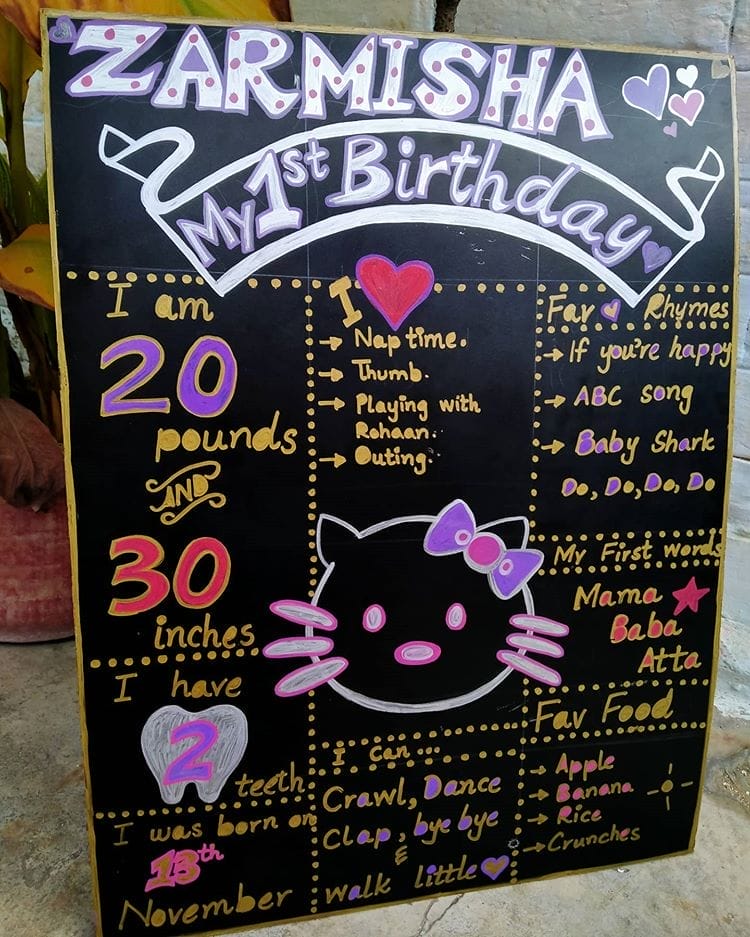 ZARMISHA
My 1st Birthday
I am
20
pounds
AND
30
inches
I have
2
teeth
I was born on
13th
November
I
Nap time.
Thumb.
Playing with
Rohaan.
Outing.
I can...
Crawl, Dance
Clap, bye bye
&
walk little
Fav Rhymes
If you're happy
ABC song
Baby Shark
Do, Do, Do, Do
My First words
Mama
Baba
Atta
Fav Food
Apple
Banana
Rice
Crunches